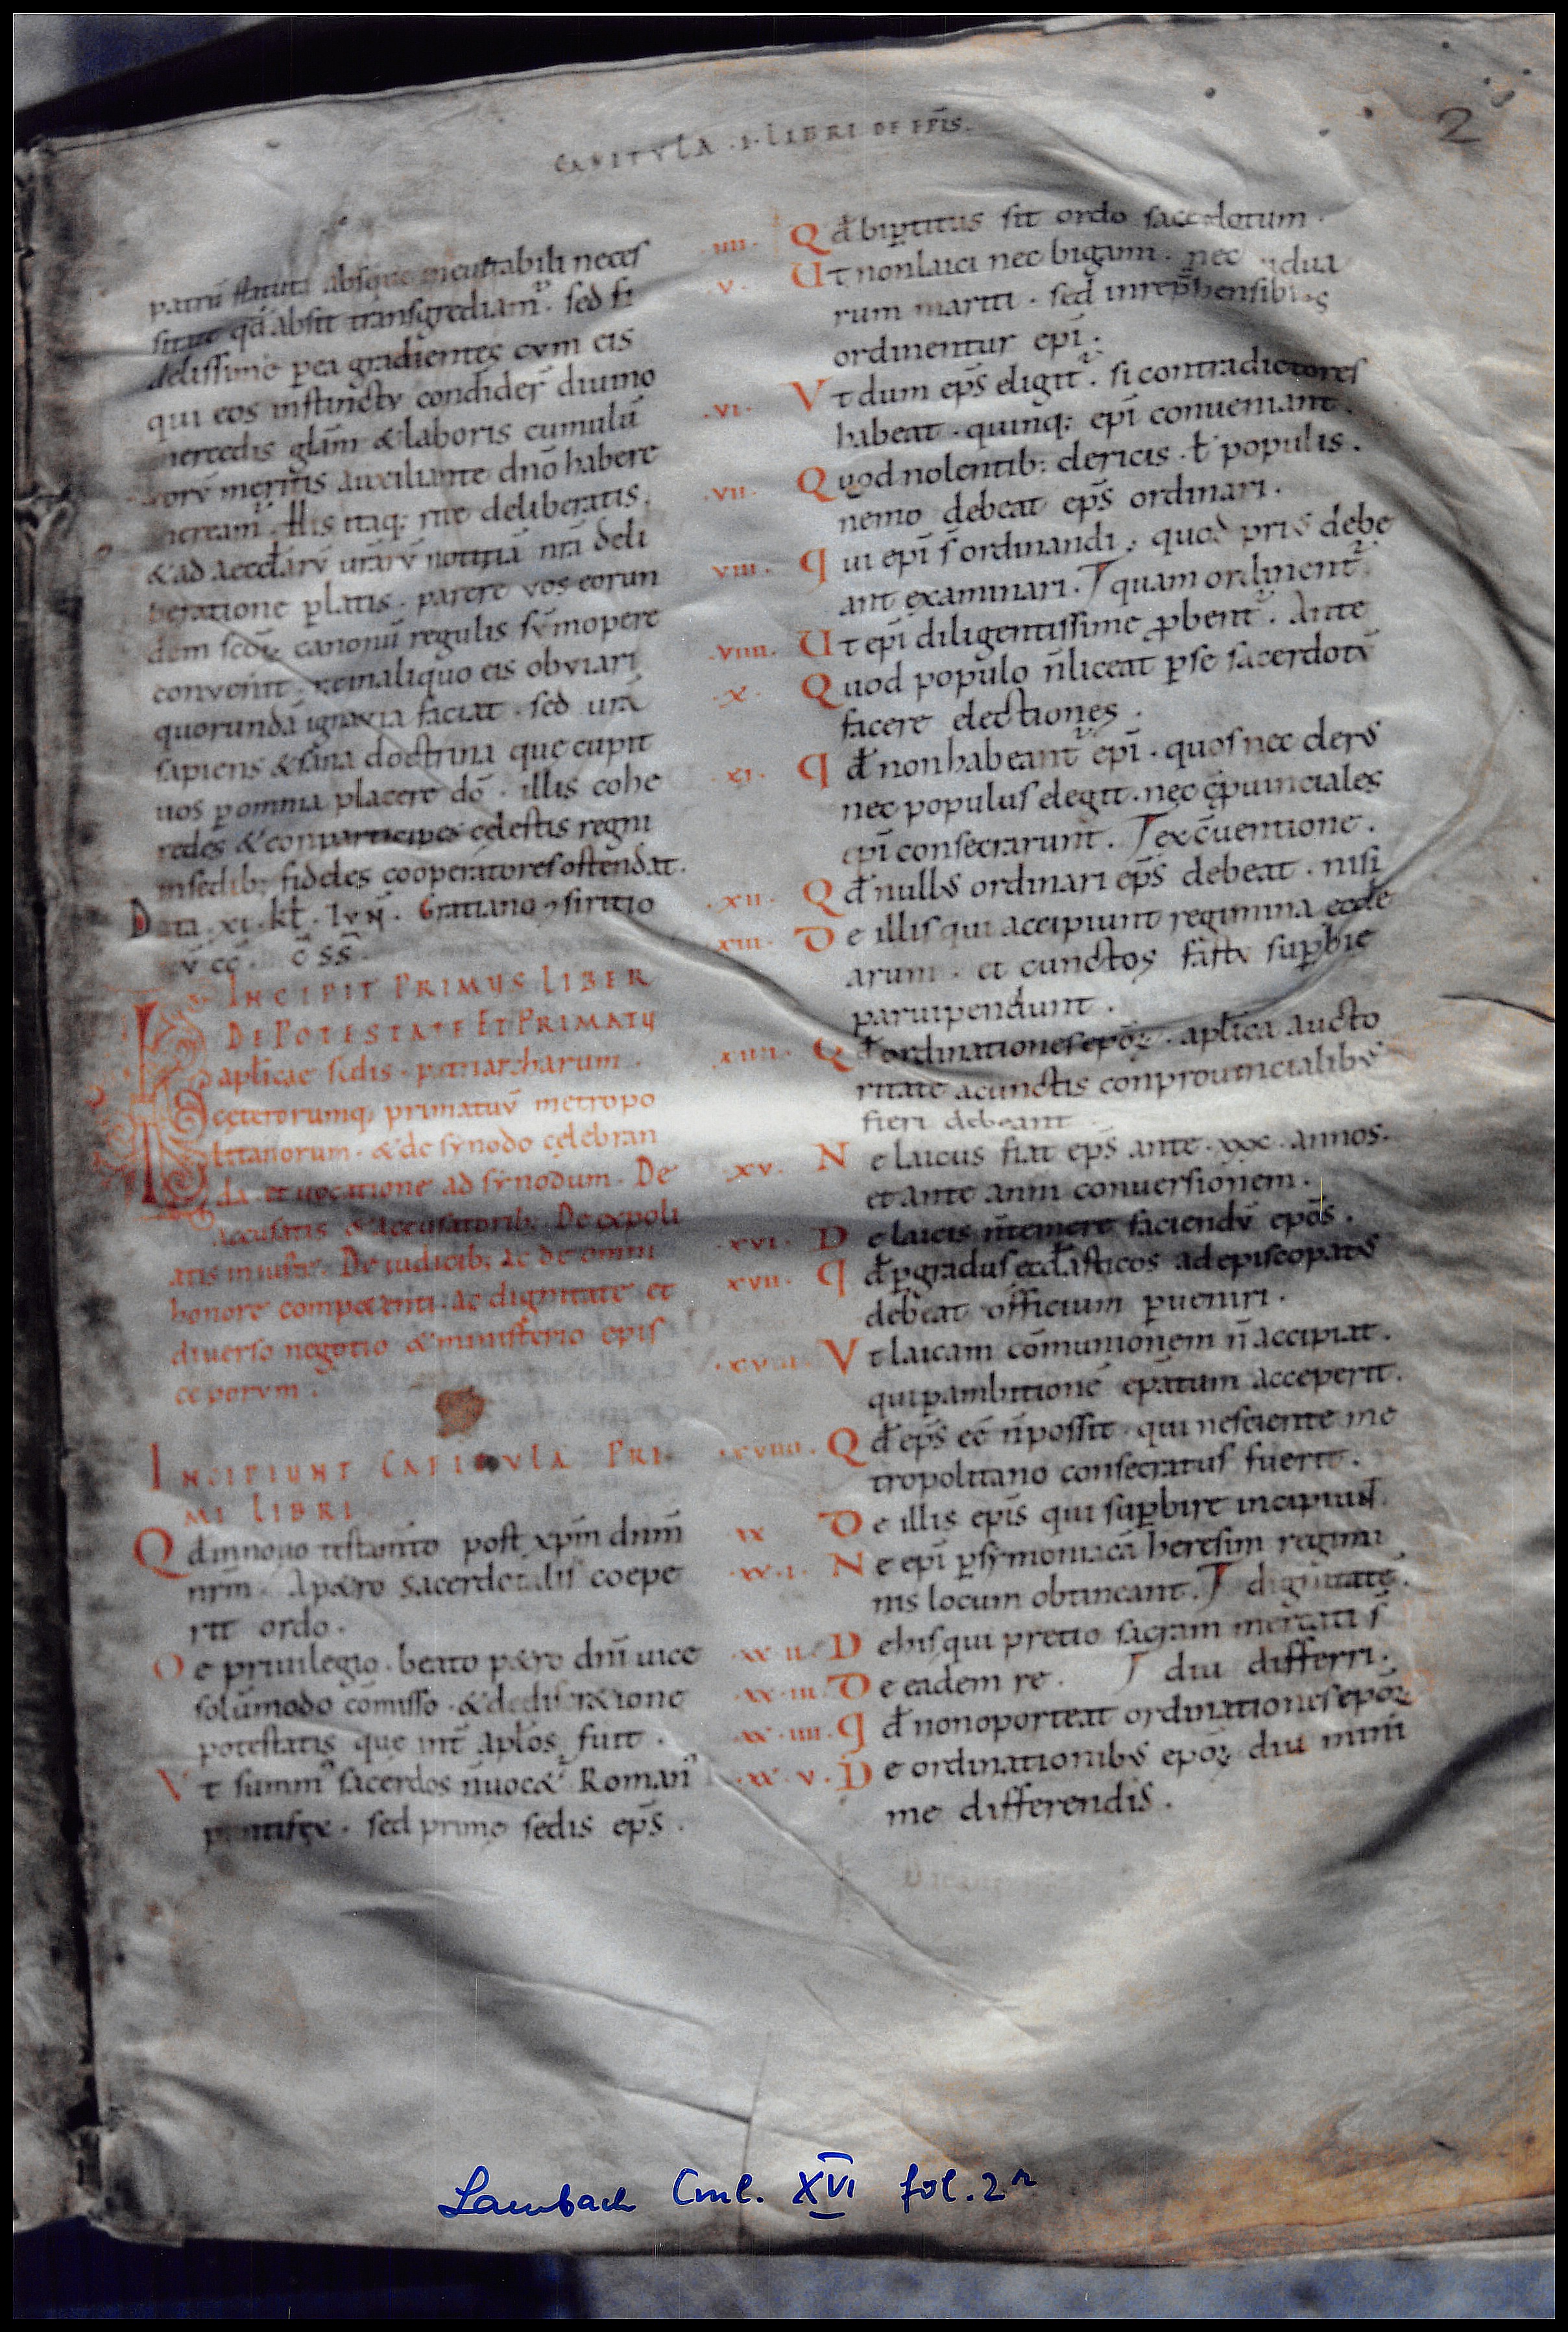 CAPITVLA .I. LIBRI DE EP̄IS.
2
patrū statuta absque ineuitabili neces
sitate qđ absit transgrediam᷑. sed fi
delissime p ea gradientes cvm eis
qui eos instinctv condider̄ diuino
mercedis gl̄am & laboris cumulū
eorv̄ meritis auxiliante dn̄o habere
meream᷑. His itaq; rite deliberatis.
& ad aecclarv̄ ur̄arv̄ notitiā nr̄a deli
beratione p̱latis. parere vos eorun
dem scōꝝ canonū regulis sūmopere
convenit. ne in aliquo eis obviari
quorundā ignavia faciat. sed ur̄a
sapiens & sana doctrina que cupit
uos p omnia placere dō. illis cohe
redes & conparticipes celestis regni
in sedib; fideles cooperatores ostendat.
Data. xi. kł. Ivn̄. Gratiano ⁊ siritio
v̄ cc̄. c̄ ss̄.
INCIPIT PRIMVS LIBER
DE POTESTATE ET PRIMATV
aplicae sedis. patriarcharum.
ceterorumq; primatuv̄ metropo
litanorum. & de synodo celebran
da et uocatione ad synodum. De
accusatis & accusatorib; De expoli
atis iniuste. De iudicib; ac de omni
honore competenti. ac dignitate et
diuerso negotio & ministerio epis
coporvm.
INCIPIUNT CAPITVLA PRI
MI LIBRI
Qd in nouo testam̄to post xp̄m dn̄m
nr̄m. A petro sacerdotalis coepe
rit ordo.
De priuilegio. beato petro dn̄i uice
solūmodo cōmisso. & de discretione
potestatis que int̄ apl̄os fuit.
Vt summ᷒ sacerdos n̄ uocet᷑ Roman᷒
pontifex. sed prime sedis ep̄s.
.iiii. Qđ bip̱titus sit ordo sacerdotum.
.v. Ut non laici nec bigami. nec uidua
rum mariti. sed inrep̱hensibiles
ordinentur ep̄i.
.vi. Vt dum ep̄s eligit᷑. si contradictores
habeat. quinq; ep̄i conueniant.
.vii. Quod nolentib; clericis. ł populis.
nemo debeat ep̄s ordinari.
.viii. Qui ep̄i s̄ ordinandi; quod pri᷒ debe
ant examinari. quam ordinent᷑.
.viiii. Ut ep̄i diligentissime ꝓbent᷑. Ante
.x. Quod populo n̄ liceat p̱ se sacerdotv̄
facere electiones.
.xi. Qđ non habeant᷑ ep̄i. quos nec cler᷒
nec populus elegit. nec cp̱uinciales
ep̄i consecrarunt. ex c̄uentione.
.xii. Qđ null᷒ ordinari ep̄s debeat. nisi
.xiii. De illis qui accipiunt regimina eccle
arum. et cunctos fastv sup̱bie
paruipendunt.
.xiiii. Qđ ordinationes ep̄oꝝ. aplica aucto
ritate a cunctis conprouincialib᷒
fieri debeant.
.xv. Ne laicus fiat ep̄s ante .xxx. annos.
et ante anm̄ conuersionem.
.xvi. De laicis n̄ temere faciendv̄ ep̄os.
.xvii. Qđ p̱ gradus ecclasticos ad episcopat᷒
debeat officium p̱ueniri.
.xviii. Vt laicam cōmunionem n̄ accipiat.
qui p̱ ambitionē ep̄atum acceperit.
.xviiii. Qđ ep̄s eē n̄ possit. qui nesciente me
tropolitano consecratus fuerit.
xx De illis ep̄is qui sup̱bire incipiunt.
.xx.i. Ne ep̄i p̱ symoniacā heresim regimi
nis locum obtineant. dignitatē.
.xx.ii. De his qui pretio sacram mercati s̄
.xx.iii. De eadem re. diu differri.
.xx.iiii. Qđ non oporteat ordinationes ep̄oꝝ
.xx.v. De ordinationib᷒ ep̄oꝝ diu mini
me differendis.
Lambach Cml. XVI fol. 2r